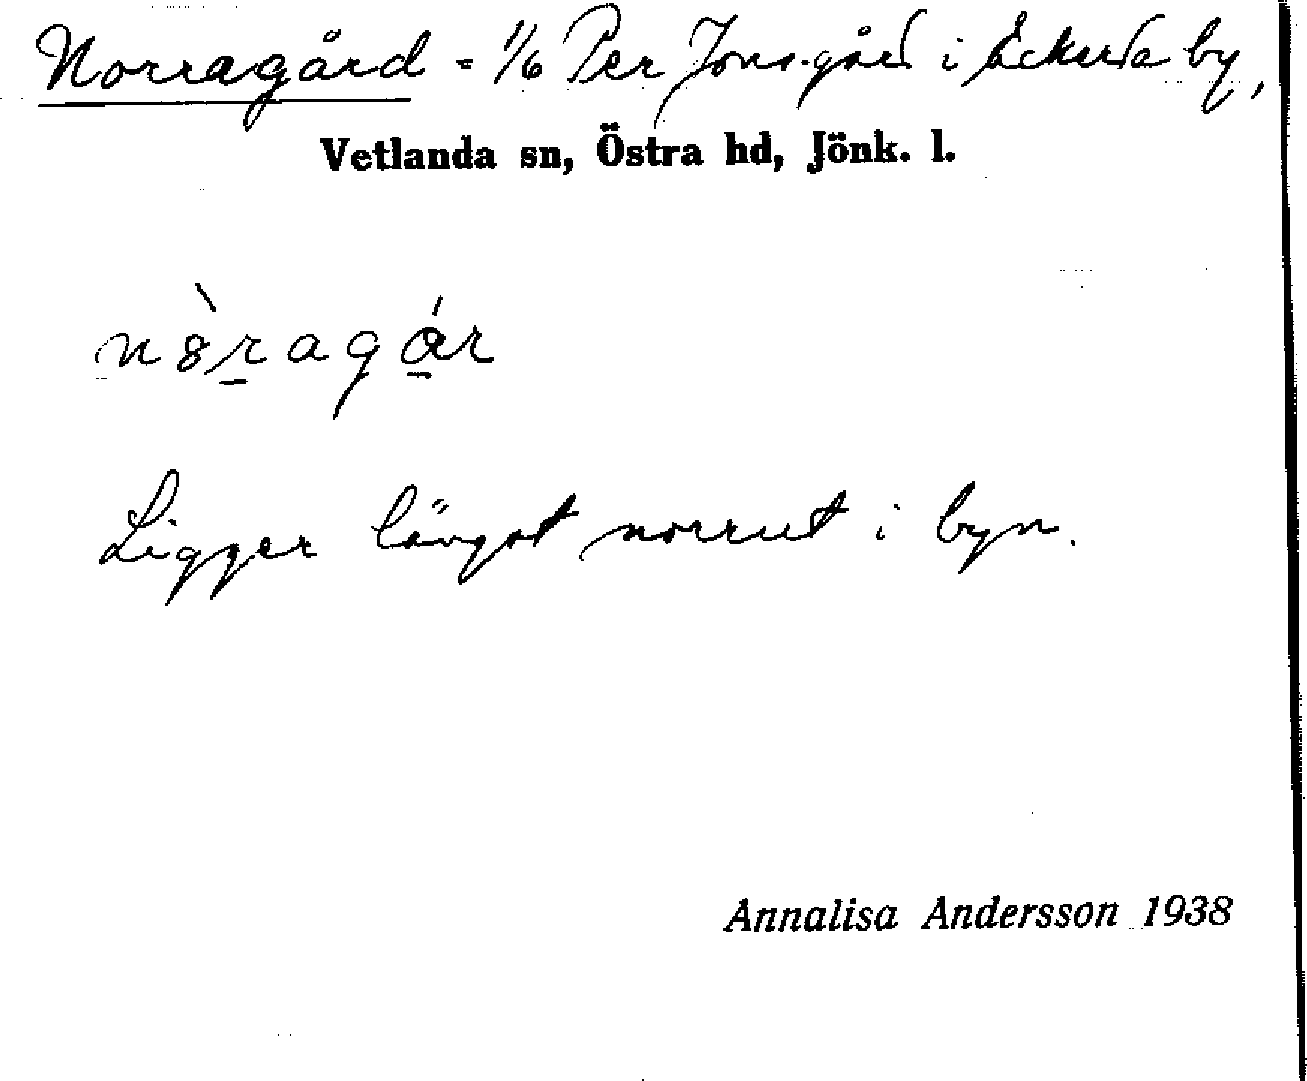 Norragård = 1/6 Per Jons.gård i Äckerda by,
Vetlanda sn, Östra hd, Jönk. l.
n8̀ragár
Ligger längst norrut i byn.
Annalisa Andersson 1938